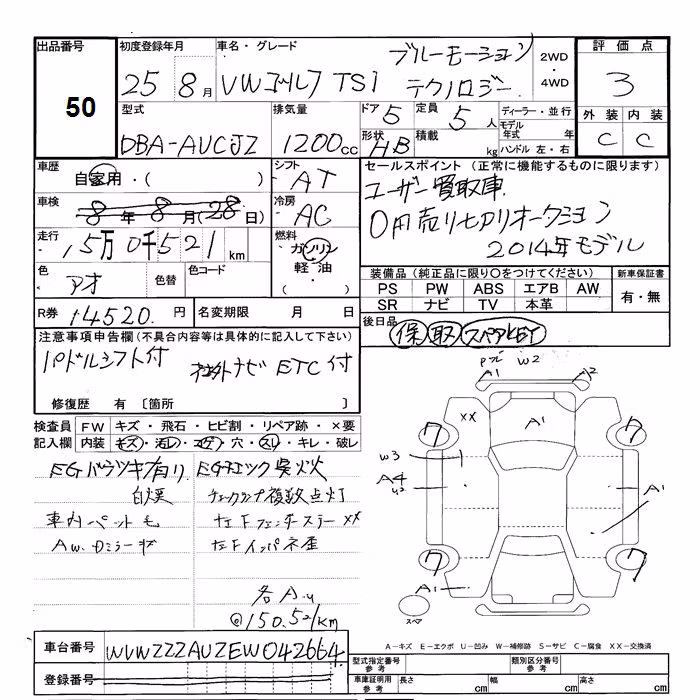 出品番号
50
初度登録年月
25 8月
車名・グレード
VWゴルフ TSI
ブルーモーション
テクノロジー
2WD
・
4WD
評価点
3
型式
DBA-AUCJZ
排気量
1200cc
ドア 5
定員 5人
形状 HB
積載 kg
ディーラー・並行
モデル年式 年
ハンドル 左・右
外装 内装
C C
車歴
自家用・( )
シフト
AT
車検
8年8月(28日)
冷房
AC
走行
15万0千521km
燃料
ガソリン
軽油
( ・ )
色
アオ
色替
色コード
R券 14520円
名変期限 月 日
セールスポイント(正常に機能するものに限ります)
ユーザー買取車
0円売り切りオークション
2014年モデル
装備品(純正品に限り〇をつけてください)
PS PW ABS エアB AW
SR ナビ TV 本革
新車保証書
有・無
後日品
保 取 スペアKEY
注意事項申告欄(不具合内容等は具体的に記入して下さい)
パドルシフト付
社外ナビ ETC付
修復歴 有 〔箇所 〕
検査員記入欄
FW キズ・飛石・ヒビ割・リペア跡・×要
内装 キズ・汚レ・コゲ・穴・スレ・キレ・破レ
EGバラツキ有り
EGチェック点火
白煙
チェックランプ複数点灯
車内ペット毛
左Fフェンダーステー××
AW.Dミラーキズ
左Fインパネ歪
各A.u
@150.521km
Pブ W2
A1 A2
XX
A1
7 7
W3
A4
U2
A1
7 7
A1
スペア
A-キズ E-エクボ U-凹み W-補修跡 S-サビ C-腐食 XX-交換済
車台番号
WVWZZZAUZEW042664
登録番号
型式指定番号
参考
類別区分番号
参考
車庫証明用
参考
長さ cm
幅 cm
高さ cm